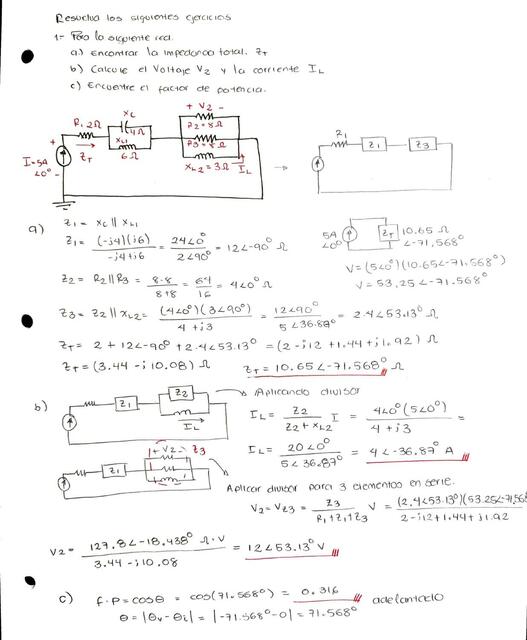 Resuelva los siguientes ejercicios
1- Para la siguiente red.
a) Encontrar la impedancia total. ZT
b) Calcule el Voltaje V2 y la corriente IL
c) Encuentre el factor de potencia.
+ V2 -
R2=8Ω
R3=8Ω
XL2=3Ω
IL
XC
4Ω
XL1
6Ω
R1 2Ω
ZT
I=5A
∠0°
+
-
R1
Z1
Z3
a)
Z1 = XC || XL1
Z1 = (-j4)(j6) / -j4+j6 = 24∠0° / 2∠90° = 12∠-90° Ω
Z2 = R2 || R3 = 8·8 / 8+8 = 64 / 16 = 4∠0° Ω
Z3 = Z2 || XL2 = (4∠0°)(3∠90°) / 4+j3 = 12∠90° / 5∠36.87° = 2.4∠53.13° Ω
ZT = 2 + 12∠-90° + 2.4∠53.13° = (2-j12+1.44+j1.92) Ω
ZT = (3.44-j10.08) Ω
ZT = 10.65∠-71.568° Ω
5A
∠0°
ZT
10.65 Ω
∠-71,568°
V=(5∠0°)(10.65∠-71,568°)
V= 53,25∠-71.568°
b)
Z1
Z2
IL
Aplicando divisor
IL = Z2 / Z2+XL2 I = 4∠0°(5∠0°) / 4+j3 =
IL = 20∠0° / 5∠36.87° = 4∠-36.87° A
Z1
+ V2 -
Z3
Aplicar divisor para 3 elementos en serie.
V2=VZ3 = Z3 / R1+Z1+Z3 V = (2.4∠53.13°)(53.25∠-71.568 / 2-j12+1.44+j1.92
V2 = 127.8∠-18.438° Ω·V / 3.44-j10.08 = 12∠53.13° V
c) f.P=cosθ = cos(71.568°) = 0.316 adelantado
θ = |θv-θi| = |-71.568°-0| = 71.568°